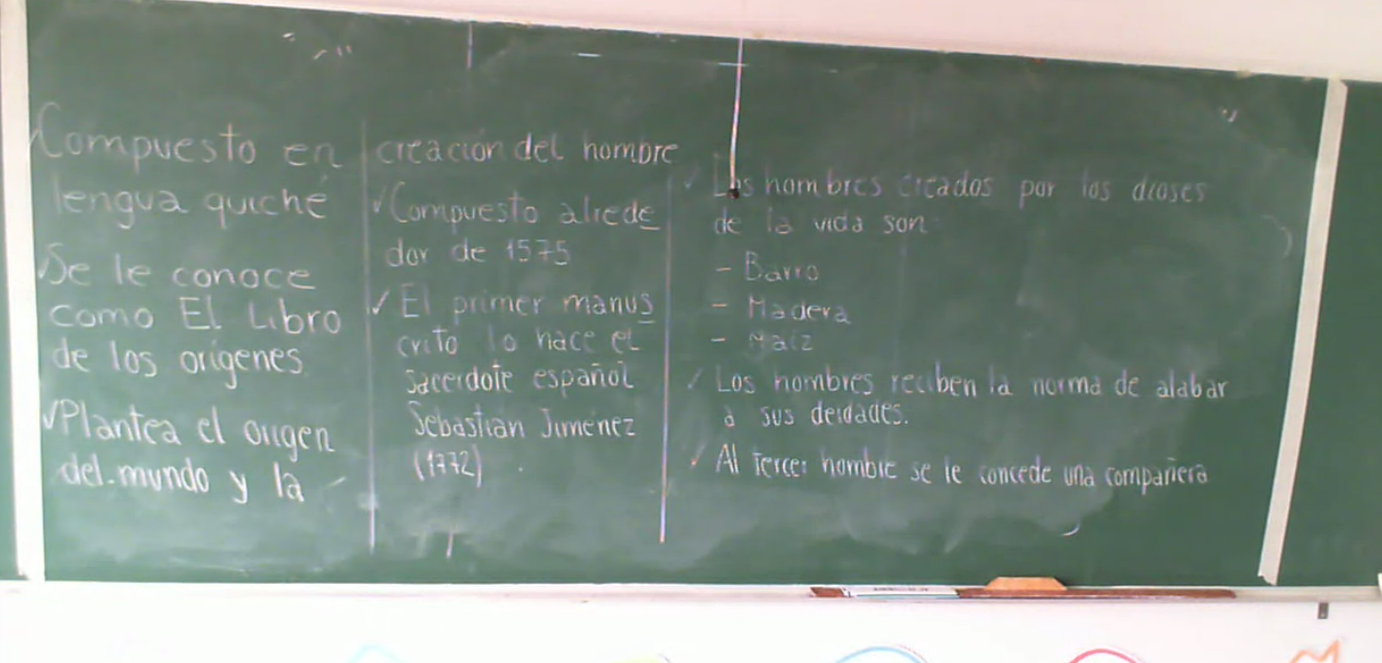 ✓Compuesto en
lengua quiché
✓Se le conoce
como El Libro
de los orígenes
✓Plantea el origen
del mundo y la
creación del hombre
✓Compuesto alrede
dor de 1575
✓El primer manus
crito lo hace el
sacerdote español
Sebastian Jiménez
(1772).
✓Los hombres creados por los dioses
de la vida son
- Barro
- Madera
- Maíz
✓Los hombres reciben la norma de alabar
a sus deidades.
✓Al tercer hombre se le concede una compañera